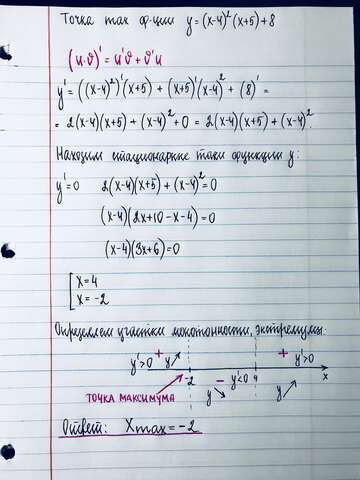 Точка max ф-ции y=(x-4)²(x+5)+8
(u·v)'=u'v+v'u
y'=((x-4)²)'(x+5)+(x+5)'(x-4)²+(8)'=
=2(x-4)(x+5)+(x-4)²+0=2(x-4)(x+5)+(x-4)².
Находим стационарные точки функции y:
y'=0 2(x-4)(x+5)+(x-4)²=0
(x-4)(2x+10-x-4)=0
(x-4)(3x+6)=0
[x=4
x=-2
Определяем участки монотонности, экстремумы:
y'>0 + y↗ + y'>0
-2 - y'<0 4 x
ТОЧКА МАКСИМУМА y↘ y↗
Ответ: Xmax=-2